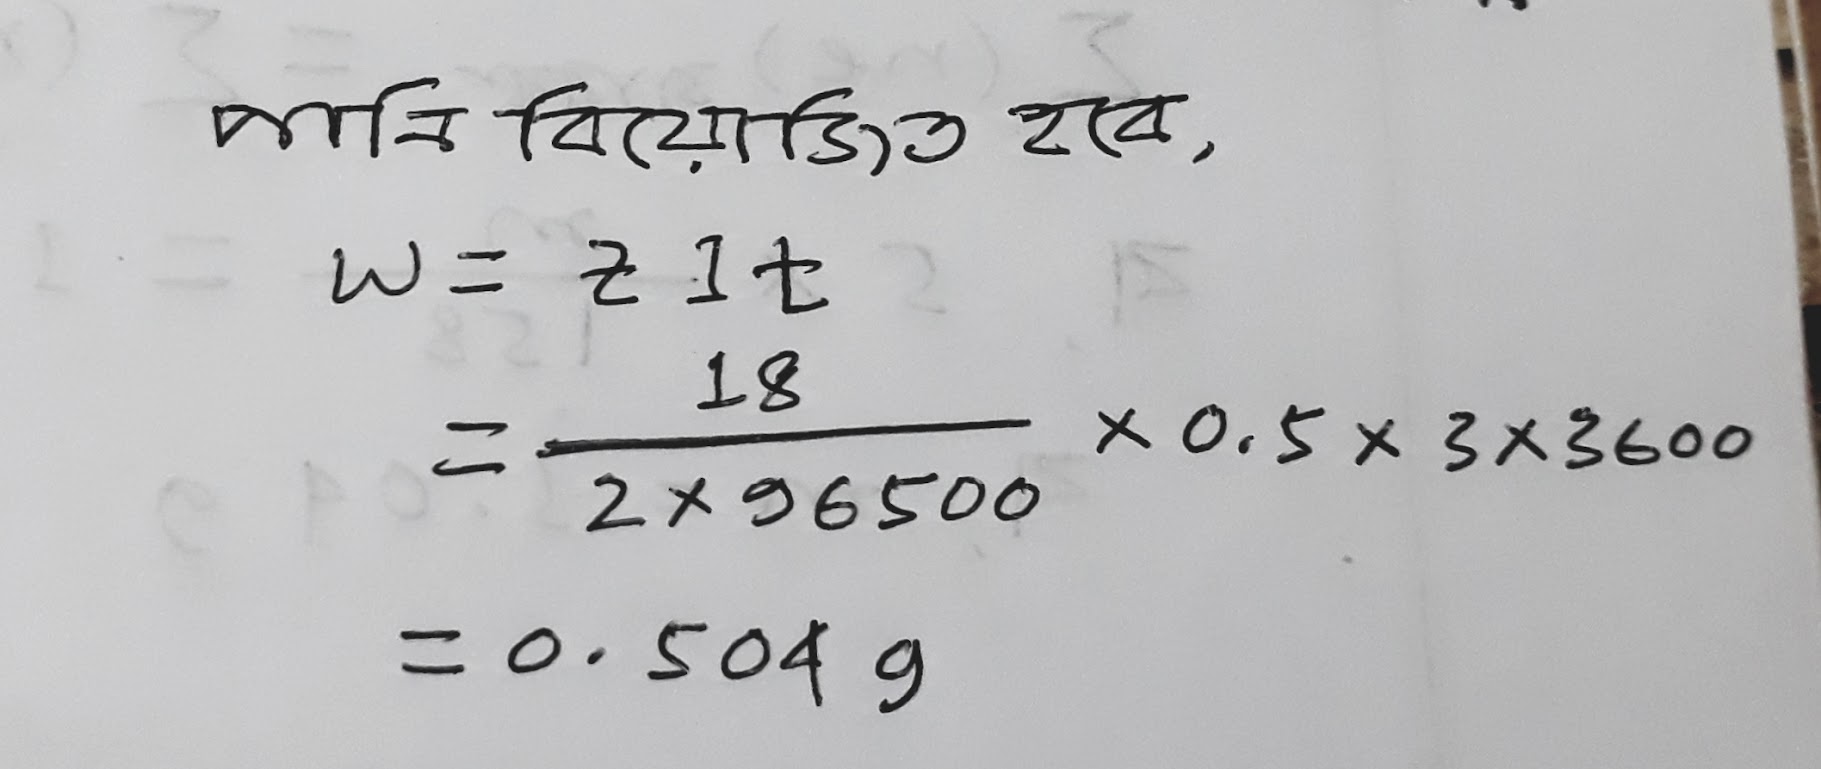 পানি বিয়োজিত হবে,
W = Z I t
= 18 / 2 × 96500 × 0.5 × 3 × 3600
= 0.504 g